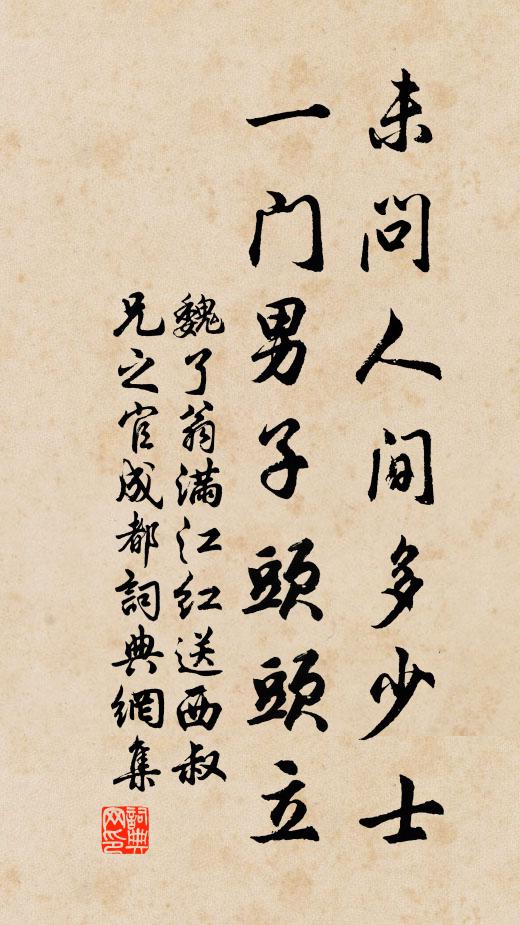 未问人间多少士
一门男子頭頭立
魏了翁满江红送西叔
兄之官成都詞典網集
詞典
网印